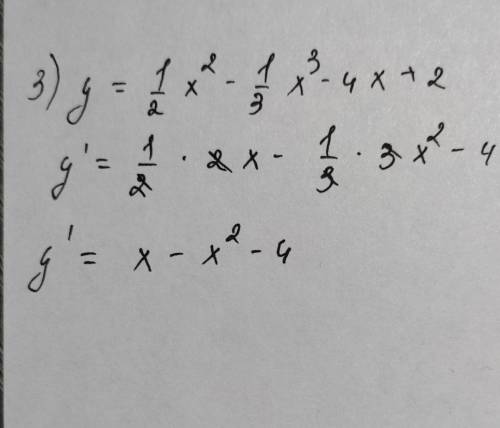 3) y = 1/2 x² - 1/3 x³ - 4x + 2
y' = 1/2 · 2x - 1/3 · 3x² - 4
y' = x - x² - 4